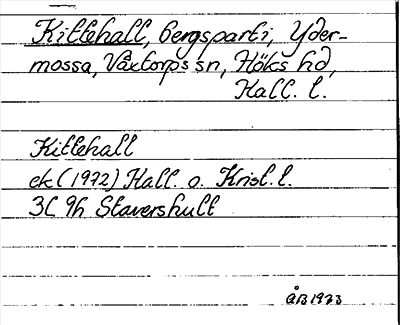 Kittehall, bergsparti, Yder-
mossa, Våxtorps sn, Höks hd,
Hall. l.
Kittehall
ek (1972) Hall. o. Krist. l.
3C 9h Stavershult
ÅB 1973